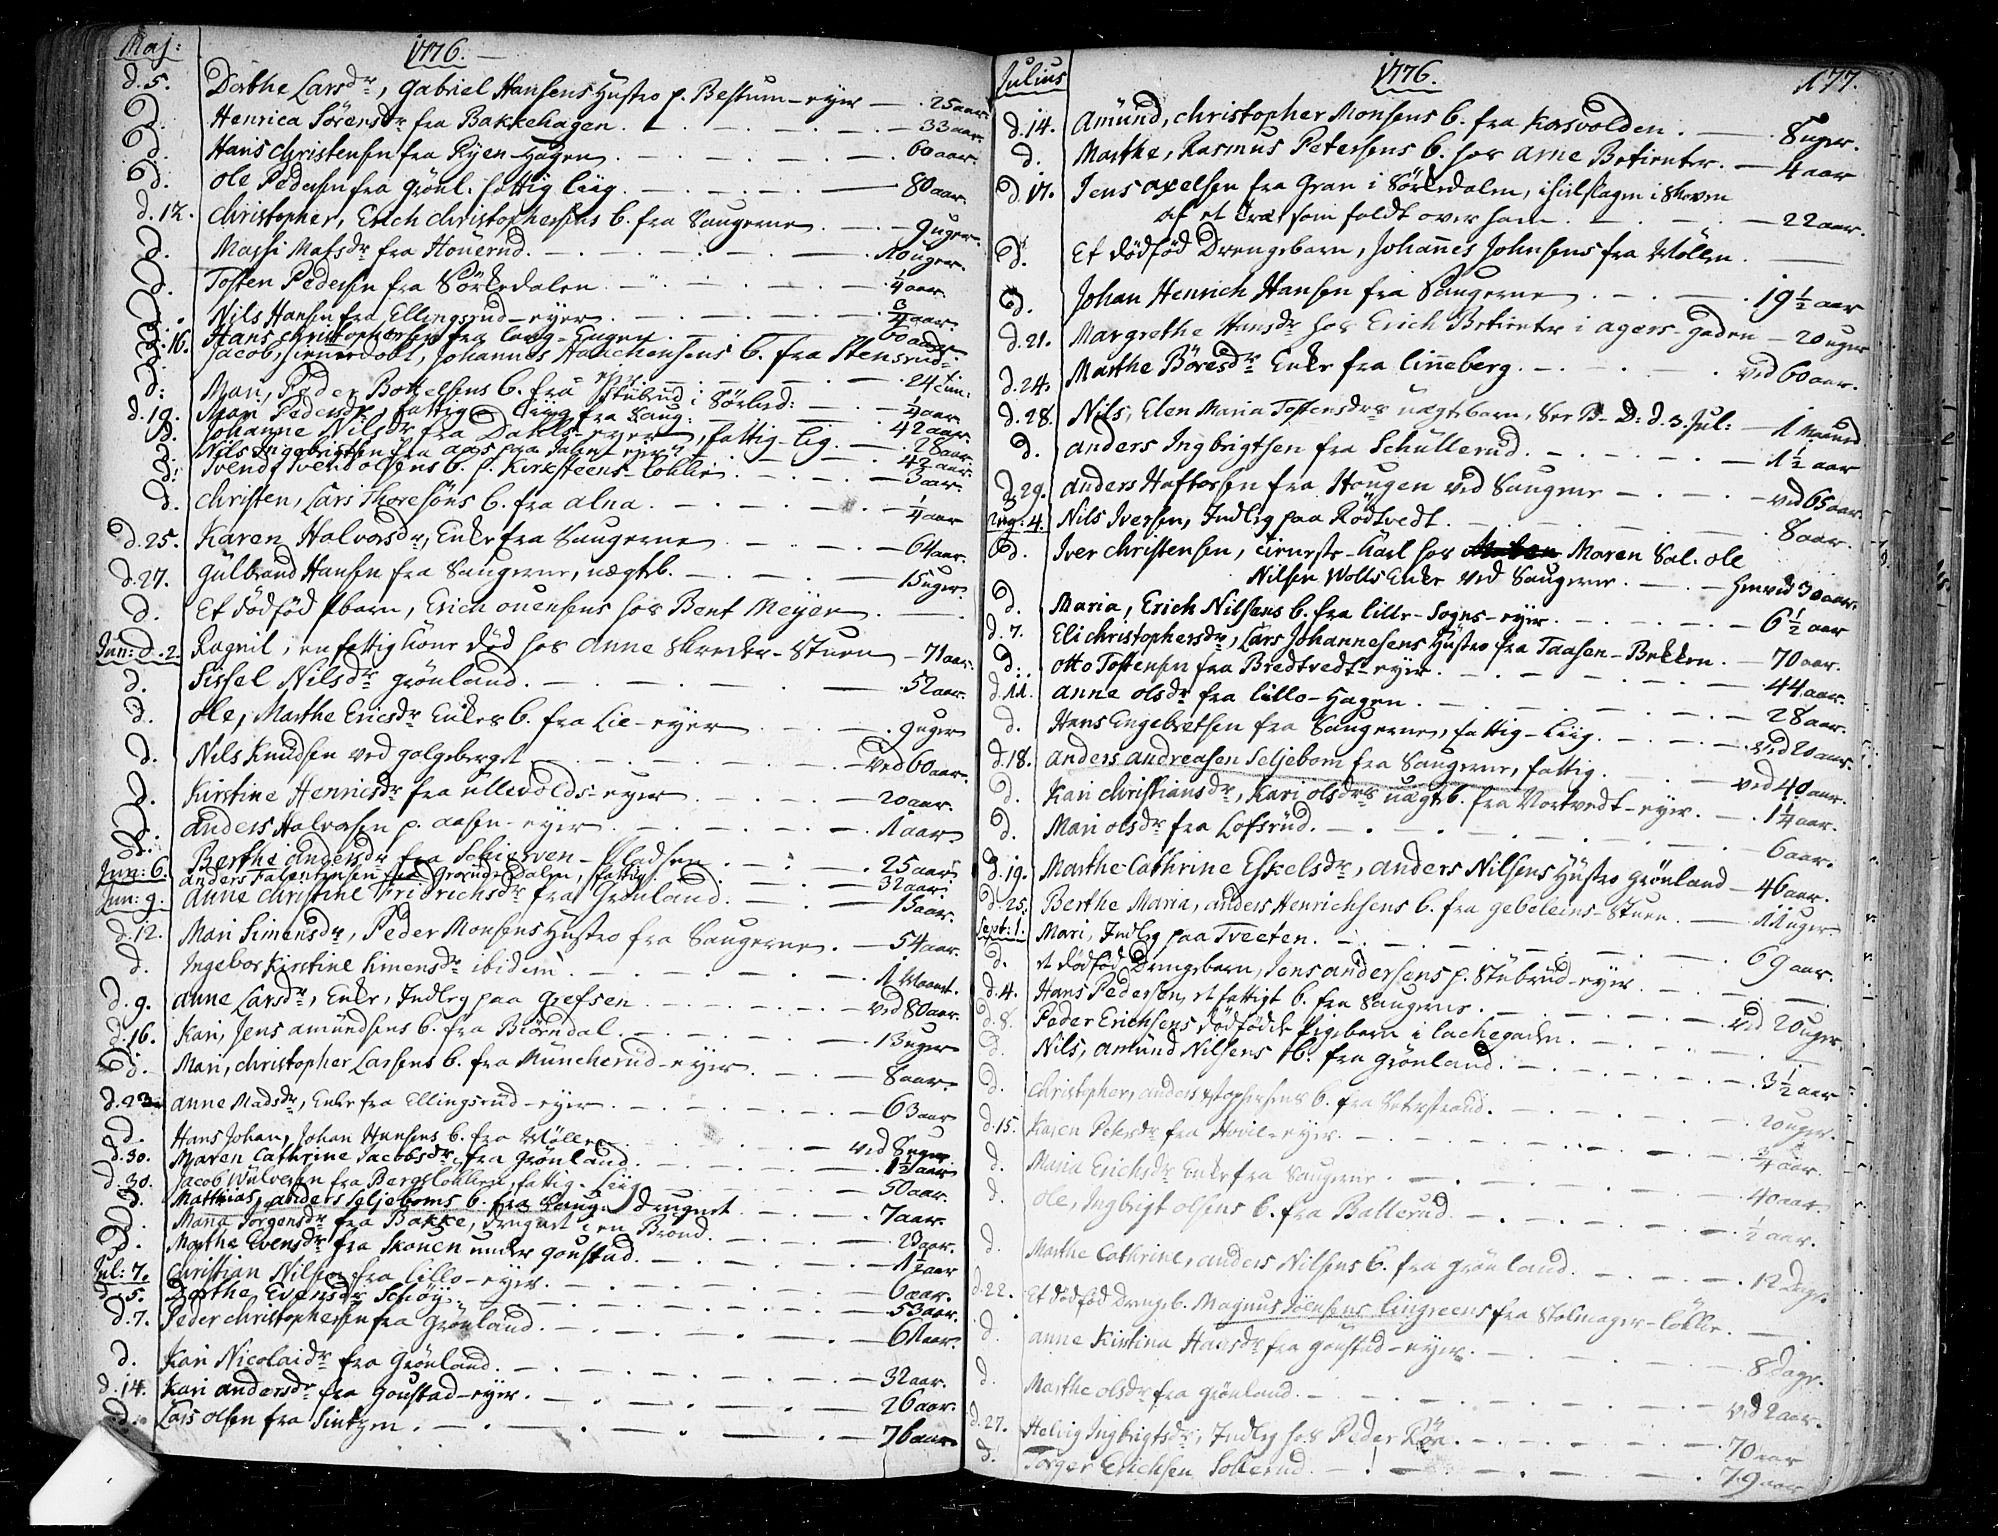 Maj: 1776.
d. 5. Dorthe Larsdr, Gabriel Hansens Hustro p. Bestum-eyer — 25 aar.
d. Henrica Sörensdr fra Bakkehagen. — 33 aar
d. Hans Christensen fra Ryen-Hagen — 60 aar.
d. Ole Pedersen fra Grönl. fattig liig. — 80 aar.
d. 12. Christopher, Erich Christophersens b. fra Saugerne — 9 uger.
d. Massi Matsdr fra Houerud. — 10 uger.
d. Tosten Pedersen fra Sörkedalen — 1/4 aar.
d. Nils Hansen fra Ellingsrud-eyer — 3/4 aar.
d. 16. Hans Christophersen fra Lang-Engen — 60 aar.
d. Jacob, hiemedöbt, Johannes Haachensens b. fra Stensrud-
eyer. — 24 tim:
d: Mari, Peder Bottelsens b. fra Stubrud i Sörked: — 1/4 aar.
d. 19. Mari Pedersdr, fattig liig fra Saug: — 42 aar.
d. Johanne Nilsdr fra Dahls-eyer, fattig-lig. — 28 aar.
d. Nils Ingebrigtsen fra — 42 aar.
d: Svend, Svend Olsens b. p. Kirkesteens-Lökke — 3 aar.
d. Christen, Lars Thoresöns b. fra Alna. — 1/4 aar
d. 25. Karen Halvorsdr, Enke fra Saugerne — 64 aar.
d. 27. Gulbrand Hansen fra Saugerne, uægteb. — 15 uger.
d. Et dödfód Pbarn, Erich Ouensens hos Bent Meyer. —
Jun: d. 2. Ragnil, en fattig Kone död hos Anne Skreder-Stuen — 71 aar.
d. Sissel Nilsdr Grönland. — 52 aar.
d. Ole, Marthe Ericsdr Enkes b. fra Lie-eyer — 9 uger
d. Nils Knudsen ved Galgeberget — ved 60 aar.
d. Kirstine Henricsdr fra Ullevolds-eyer — 20 aar.
d. Anders Halvorsen p. Aasen-eyer — 1 aar
d. Berthe Andersdr fra Skierven-Pladsen. — 25 aar
Jun: 6. Anders Falentinsen fra Groruds Dalen, fattig. — 32 aar
Jun: 9. Anne Christine Fridrichsdr fra Grönland. — 15 aar.
d. 12. Mari Simensdr, Peder Monsens Hustro fra Saugerne. — 54 aar.
d. Ingebor Kirstine Simensdr ibidem. — 1 Maant.
d. 9. Anne Larsdr, Enke, Indleg paa Grefsen — ved 80 aar.
d. 16. Kari, Jens Amundsens b. fra Biörndal. — 13 uger
d. Mari, Christopher Larsens b. fra Muncherud-eyer — 8 aar.
d. 23. Anne Madsdr, Enke fra Ellingsrud-eyer — 63 aar
d. Hans Johan, Johan Hansens b. fra Möllen — ved 8 uger
d. 30. Maren Cathrine Jacobsdr, fra Grönland. — 1 1/2 aar
d. 30. Jacob Wulversen fra Bergslökken, fattig-Liig — 50 aar.
d. Matthias, Anders Seljeboms b. fra Saug: Drugnet — 7 aar.
d. Maria Jörgensdr fra Bakke, Drugnet i en Brönd. — 23 aar.
d. Marthe Evensdr fra Skouen under Goustad. — 1 1/2 aar
Jul: 7. Christian Nilsen fra Lillo-eyer. — 6 aar.
d. 5. Dorthe Evensdr Schöÿ. — 53 aar.
d. 7. Peder Christophersen fra Grönland. — 61 aar.
d. Kari Nicolaidr fra Grönland. — 32 aar.
d. 14. Kari Andersdr fra Goustad-eyer. — 26 aar.
d. Lars Olsen fra Sinksen. — 76 aar.
Julius 1776. 177.
d. 14. Amund, Christopher Monsens b. fra Korsvolden. — 8 uger.
d. Marthe, Rasmus Petersens b. hos Arne Betienter. — 4 aar
d. 17. Jens Axelsen fra Gran i Sörkedalen, ihielslagen i Skoven
af et Træ som faldt over ham — 22 aar.
d. Et dödfód Drengebarn, Johannes Johnsens fra Möllen. —
d. Johan Henrich Hansen fra Saugerne — 19 1/2 aar
d. 21. Margrethe Hansdr hos Erich Betienter i Agers-Gaden — 20 uger
d. 24. Marthe Böresdr Enke fra Linneberg. — ved 60 aar.
d. 28. Nils, Elen Maria Tostensdrs uægtebarn, See D: d. 3. Jul: — 1 Maaned
d. Anders Ingbrigtsen fra Schullerud. — 1 1/2 aar
d. 29. Anders Haftorsen fra Haugen ved Saugene — ved 65 aar.
Aug: 4. Nils Iversen, Indleg paa Rödtvedt. — 8 aar.
d. Iver Christensen, tieneste-Karl hos Maren Sal. Ole
Nilsen Wolls Enke ved Saugerne. — henved 30 aar.
d. Maria, Erich Nilsens b. fra Lille-Sogns-eyer. — 6 1/2 aar
d. 7. Eli Christophersdr, Lars Johannesens Hustro fra Taasen-Bekken. — 70 aar.
d. Otto Tostensen fra Bredtvedt-eyer. — 44 aar.
d. 11. Anne Olsdr fra Lillo-Hagen. — 28 aar.
d. Hans Engebretsen fra Saugerne, fattig-Liig. — ved 20 aar.
d. 18. Anders Andreasen Seljebom fra Saugerne, fattig. — ved 40 aar.
d. Kari Christiansdr, Kari Olsdrs uægteb. fra Nortvedt-eyer. — 1 1/4 aar.
d. Mari Olsdr fra Lofsrud. — 6 aar.
d. 19. Marthe Cathrine Eskelsdr, Anders Nilsens Hustro Grönland — 46 aar.
d. 25. Berthe Maria, Anders Henrichsens b. fra Gebeleins-Stuen — 11 uger.
Sept: 1. Mari, Indleg paa Tveeten. — 69 aar.
d. et dödfód Drengebarn, Jens Andersens p. Stubrud-eyer. —
d. 4. Hans Pedersen, et fattigt b. fra Saugerne. — ved 20 uger
d. 8. Peder Erichsens dödfödde Pigebarn i Lachegaden. —
d. Nils, Amund Nilsens b. fra Grönland. — 3 1/2 aar
d. Christopher, Anders Xstophersens b. fra — 20 uger.
d. 15. Karen Pedersdr fra Hovil-eyer. — 3/4 aar.
d. Maria Erichsdr Enke fra Saugerne. — 40 aar
d. Ole, Ingbrigt Olsens b. fra Ballerud. — 1/2 aar.
d. Marthe Cathrine, Anders Nilsens b. fra Grönland. — 12 dage.
d. 22. Et dödfód Drengeb. Magnus Jöensens Lingreens fra Stolmager-Lökke. —
d. Anne Kirstina Hansdr fra Goustad-eyer. — 8 dage.
d. Marthe Olsdr fra Grönland. — ved 2 aar.
d. 27. Helvig Ingbrigtsdr, Indleg hos Peder Röa. — 70 aar
d. Torger Erichsen Sollerud. — 79 aar